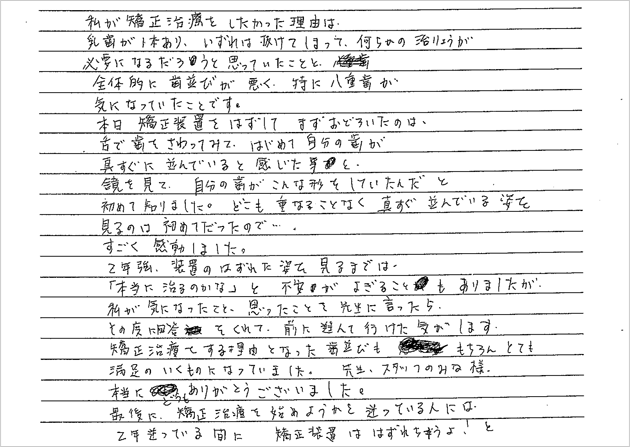 私が矯正治療をしたかった理由は、
乳歯が1本あり、いずれは抜けてしまって、何らかの治りょうが
必要になるだろうと思っていたことと、
全体的に歯並びが悪く、特に八重歯が
気になっていたことです。
本日 矯正装置をはずして まずおどろいたのは、
舌で歯をさわってみて、はじめて自分の歯が
真すぐに並んでいると感じたこと。
鏡を見て、自分の歯がこんな形をしていたんだと
初めて知りました。どこも重なることなく真すぐ並んでいる姿を
見るのは初めてだったので…。
すごく感動しました。
2年強、装置のはずれた姿を見るまでは、
「本当に治るのかな」と不安がよぎることもありましたが、
私が気になったこと、思ったことを先生に言ったら、
その度に回答をくれて、前に進んで行けた気がします。
矯正治療をする理由となった歯並びも もちろんとても
満足のいくものになっていました。先生、スタッフのみな様、
本当にどうもありがとうございました。
最後に、矯正治療を始めようかと迷っている人には
2年迷っている間に 矯正装置ははずれちゃうよ!と